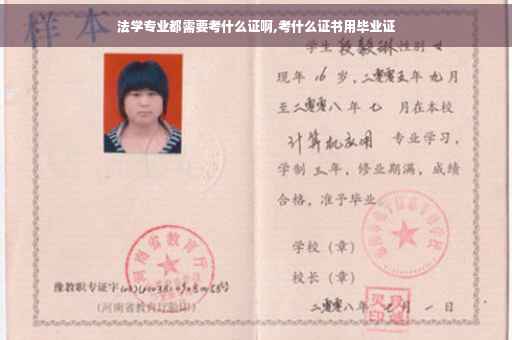 法学专业都需要考什么证啊,考什么证书用毕业证
样本
学生 段毅琳 性别 女
现年 16 岁,二零零五年 九 月
至二零零八年 七 月在本校
计算机应用 专业学习,
学制 三 年,修业期满,成绩
合格,准予毕业
学校(章)
校长(章)
二零零八年 七 月 一 日
河南省教育厅
豫教职专证字
(河南省教育厅验印)